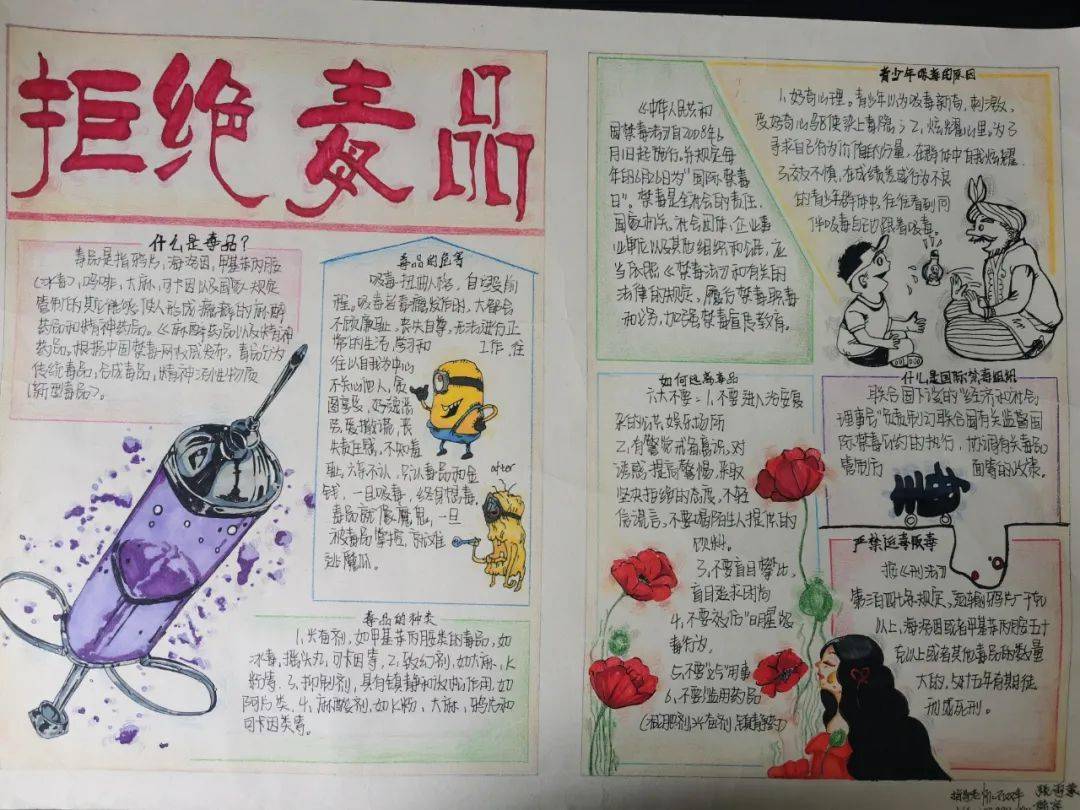 拒绝毒品
什么是毒品?
毒品是指鸦片,海洛因,甲基苯丙胺
(冰毒),吗啡,大麻,可卡因以及国家规定
管制的其它能够使人形成瘾癖的麻醉
药品和精神药品。《麻醉药品以及精神
药品。根据中国禁毒网权威发布,毒品分为
传统毒品,合成毒品,精神活性物质
(新型毒品)。
毒品的危害
吸毒扭曲人格,自毁前
程。吸毒者毒瘾发作时,大都会
不顾廉耻,丧失自尊,无法进行正
常的生活,学习和工作,往
往以自我为中心
不关心他人,贪
图享受,好逸恶
劳,爱撒谎,丧
失责任感,不知羞
耻,六亲不认,只认毒品和金
钱,一旦吸毒,终身想毒,
毒品就像魔鬼,一旦
被毒品掌控,就难
逃魔爪。
after
毒品的种类
1,兴奋剂,如甲基苯丙胺类的毒品,如
冰毒,摇头丸,可卡因等,2,致幻剂,如大麻,K
粉等。3,抑制剂,具有镇静和放松作用,如
阿片类,4,麻醉剂,如K粉,大麻,鸦片和
可卡因类等。
《中华人民共和
国禁毒法》自2008年6
月1日起施行。并规定每
年的6月26日为"国际禁毒
日"。禁毒是全社会的责任,
国家机关,社会团体,企业事
业单位以及其他组织和公民,应
当依照《禁毒法》和有关的
法律的规定,履行禁毒职责
和义务,加强禁毒宣传教育。
青少年吸毒的原因
1,好奇心理。青少年以为吸毒新奇,刺激,
受好奇心驱使染上毒瘾;2,炫耀心理。为了
寻求自己行为价值的份量,在群体中自我炫耀
3,交友不慎,在成绩差或行为不良
的青少年群体中,往往看到同
伴吸毒自己也跟着吸毒。
如何远离毒品
六大不要:1,不要进入治安复
杂的公共娱乐场所
2,有警觉戒备意识,对
诱惑提高警惕,采取
坚决拒绝的态度,不轻
信谎言,不要喝陌生人提供的
饮料。
3,不要盲目攀比,
盲目追求时尚
4,不要效仿"明星"吸
毒行为,
5,不要"义气"用事
6,不要滥用药品
(减肥剂,兴奋剂,镇静药)
什么是国际禁毒组织
联合国下设的"经济和社会
理事会"负责制订联合国有关监督国
际禁毒公约的执行,协调有关毒品
管制方面等的政策。
严禁运毒贩毒
按《刑法》
第三百四十七条规定,运输鸦片一千克
以上,海洛因或者甲基苯丙胺五十
克以上或者其他毒品的数量
大的,处十五年有期徒
刑或死刑。